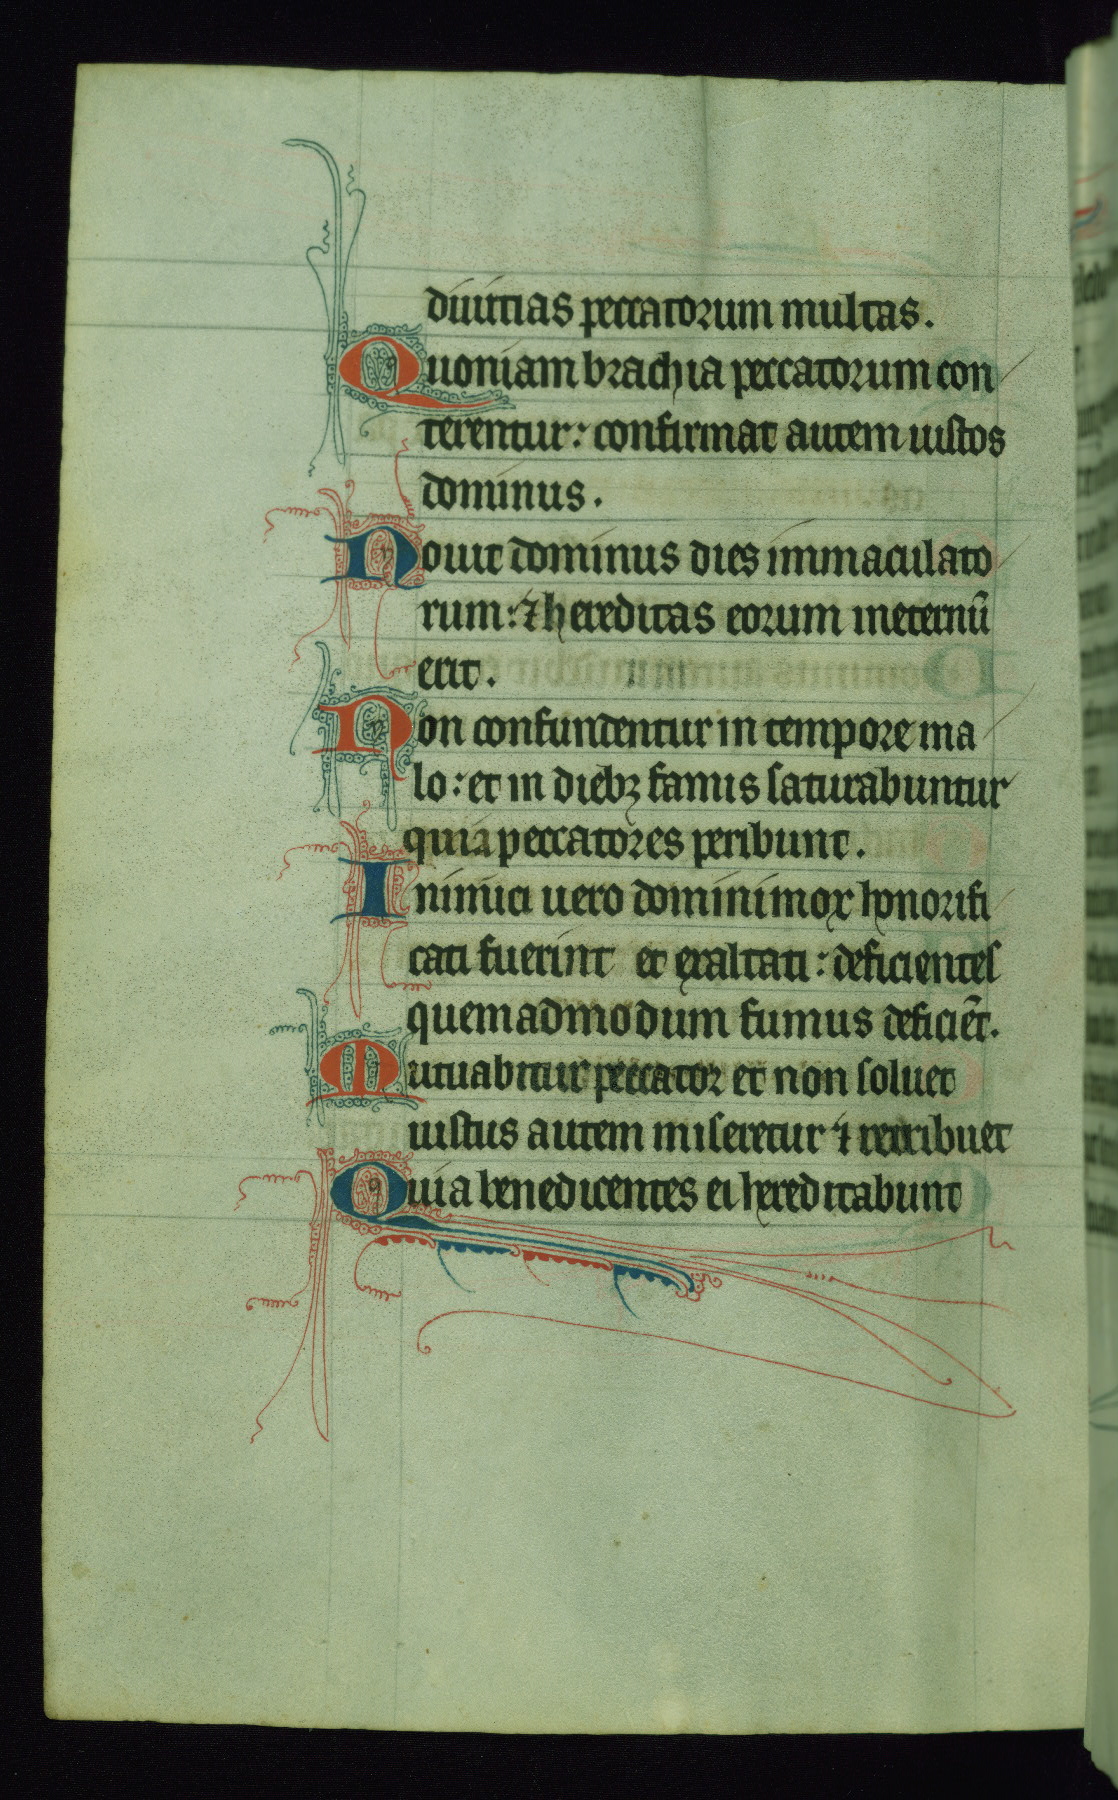 diuitias peccatorum multas.
Quoniam brachia peccatorum con
terentur: confirmat autem iustos
dominus.
Nouit dominus dies immaculato
rum: ⁊ hereditas eorum ineternū
erit.
Non confundentur in tempore ma
lo: et in diebꝫ famis saturabuntur
quia peccatores peribunt.
Inimici uero domini mox honorifi
cati fuerint et exaltati: deficientes
quemadmodum fumus deficiēt.
Mutuabitur peccator et non soluet
iustus autem miseretur ⁊ retribuet
Quia benedicentes ei hereditabunt